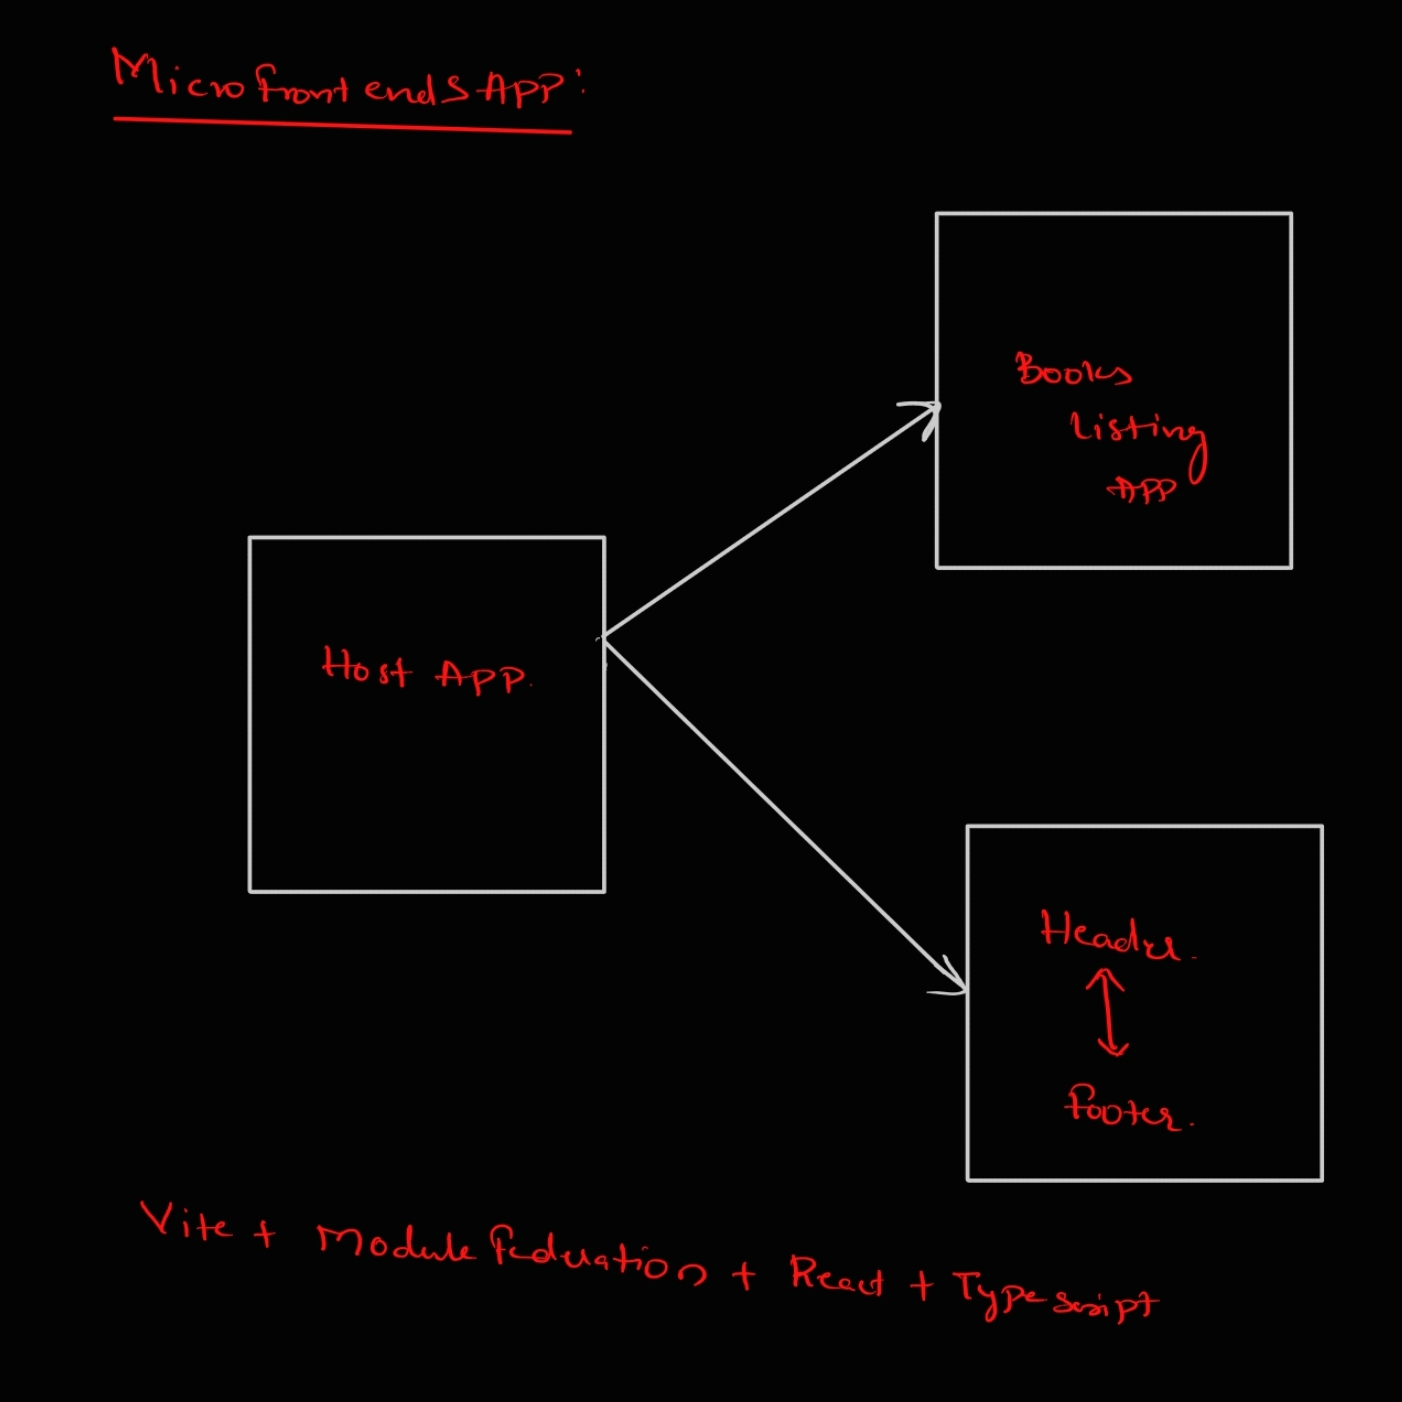 Microfrontends App:
Books
Listing
App
Host App.
Header.
Footer.
Vite + Module Federation + React + Typescript